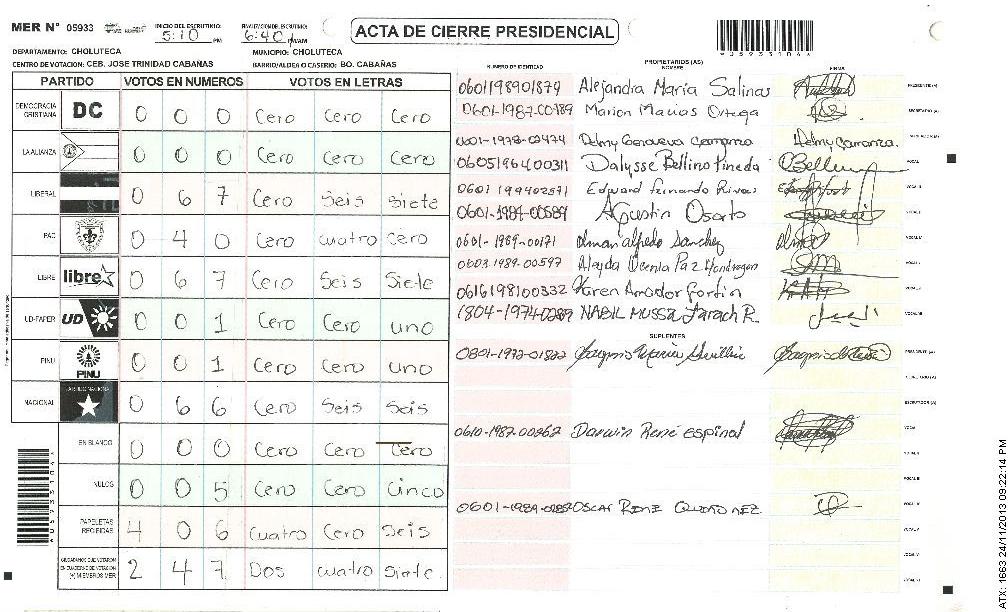 MER Nº 05933 INICIO DEL ESCRUTINIO: 5:10 PM FINALIZACION DEL ESCRUTINIO: 6:40 PM/AM
ACTA DE CIERRE PRESIDENCIAL
DEPARTAMENTO: CHOLUTECA MUNICIPIO: CHOLUTECA
CENTRO DE VOTACION: CEB. JOSE TRINIDAD CABAÑAS BARRIO/ALDEA O CASERIO: BO. CABAÑAS
PARTIDO VOTOS EN NUMEROS VOTOS EN LETRAS
DEMOCRACIA CRISTIANA DC 0 0 0 Cero Cero Cero
LA ALIANZA 0 0 0 Cero Cero Cero
LIBERAL 0 6 7 Cero Seis Siete
PAC 0 4 0 Cero cuatro Cero
LIBRE libre 0 6 7 Cero Seis Siete
UD-FAPER UD 0 0 1 Cero Cero uno
PINU PINU 0 0 1 Cero Cero uno
NACIONAL PARTIDO NACIONAL 0 6 6 Cero Seis Seis
EN BLANCO 0 0 0 Cero Cero Cero
NULOS 0 0 5 Cero Cero Cinco
PAPELETAS RECIBIDAS 4 0 6 Cuatro Cero Seis
CIUDADANOS QUE VOTARON EN CUADERNO DE VOTACION (+) MIEMBROS MER 2 4 7 Dos cuatro Siete
NUMERO DE IDENTIDAD PROPIETARIOS (AS) NOMBRE FIRMA
0601198901874 Alejandra Maria Salinas PRESIDENTE (A)
0601-1987-00989 Marion Macias Ortega SECRETARIO (A)
0601-1978-02474 Delmy Genoveva Carranza Delmy Carranza.
0605196400311 Dalysse Bellino Pineda VOCAL
0601 199402571 Edward Fernando Rivas
0601-1984-00589 Agustin Osorto
0601-1989-00171 Olman alfredo Sanchez
0603 1989-00597 Aleyda Ucenia Paz Mondragon
0616198100332 Karen Amador Fortin
1804-1974 NABIL MUSSA Farach R.
SUPLENTES
0801-1972-01822 PRESIDENTE (A)
SECRETARIO (A)
ESCRUTADOR (A)
0610-1987-00862 Darwin René espinal
0601-1989 OSCAR RENE
05933106
ATX: 1663 24/11/2013 09:22:14 PM